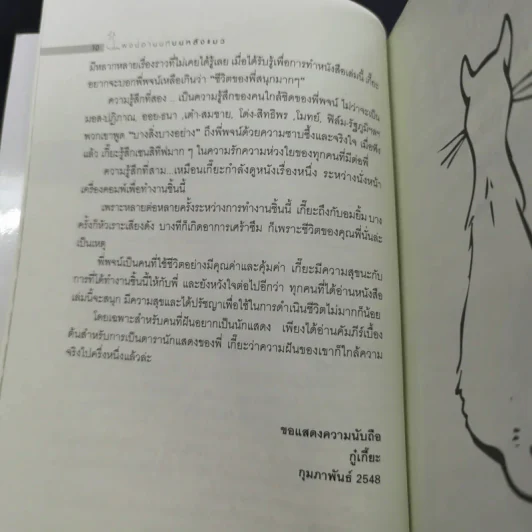 10 พจน์อานนท์บนหลังแมว
มีหลากหลายเรื่องราวที่ไม่เคยได้รู้เลย เมื่อได้รับรู้เพื่อการทำหนังสือเล่มนี้ เกี๊ยะ
อยากจะบอกพี่พจน์เหลือเกินว่า “ชีวิตของพี่สนุกมากๆ”
ความรู้สึกที่สอง .. เป็นความรู้สึกของคนใกล้ชิดของพี่พจน์ ไม่ว่าจะเป็น
มอส-ปฏิภาณ, ออย-ธนา ,เต๋า-สมชาย, โด่ง-สิทธิพร ,โมทย์, ฟิล์ม-รัฐภูมิฯลฯ
พวกเขาพูด “บางสิ่งบางอย่าง” ถึงพี่พจน์ด้วยความซาบซึ้งและจริงใจ เมื่อฟัง
แล้ว เกี๊ยะรู้สึกเซนสิทีฟมาก ๆ ในความรักความห่วงใยของทุกคนที่มีต่อพี่
ความรู้สึกที่สาม...เหมือนเกี๊ยะกำลังดูหนังเรื่องหนึ่ง ระหว่างนั่งหน้า
เครื่องคอมพ์เพื่อทำงานชิ้นนี้
เพราะหลายต่อหลายครั้งระหว่างการทำงานชิ้นนี้ เกี๊ยะถึงกับอมยิ้ม บาง
ครั้งก็หัวเราะเสียงดัง บางทีก็เกิดอาการเศร้าซึม ก็เพราะชีวิตของคุณพี่นั่นล่ะ
เป็นเหตุ
พี่พจน์เป็นคนที่ใช้ชีวิตอย่างมีคุณค่าและคุ้มค่า เกี๊ยะมีความสุขนะกับ
การที่ได้ทำงานชิ้นนี้ให้กับพี่ และยังหวังใจต่อไปอีกว่า ทุกคนที่ได้อ่านหนังสือ
เล่มนี้จะสนุก มีความสุขและได้ปรัชญาเพื่อใช้ในการดำเนินชีวิตไม่มากก็น้อย
โดยเฉพาะสำหรับคนที่ฝันอยากเป็นนักแสดง เพียงได้อ่านคัมภีร์เบื้อง
ต้นสำหรับการเป็นดารานักแสดงของพี่ เกี๊ยะว่าความฝันของเขาก็ใกล้ความ
จริงไปครึ่งหนึ่งแล้วล่ะ
ขอแสดงความนับถือ
กู๋เกี๊ยะ
กุมภาพันธ์ 2548